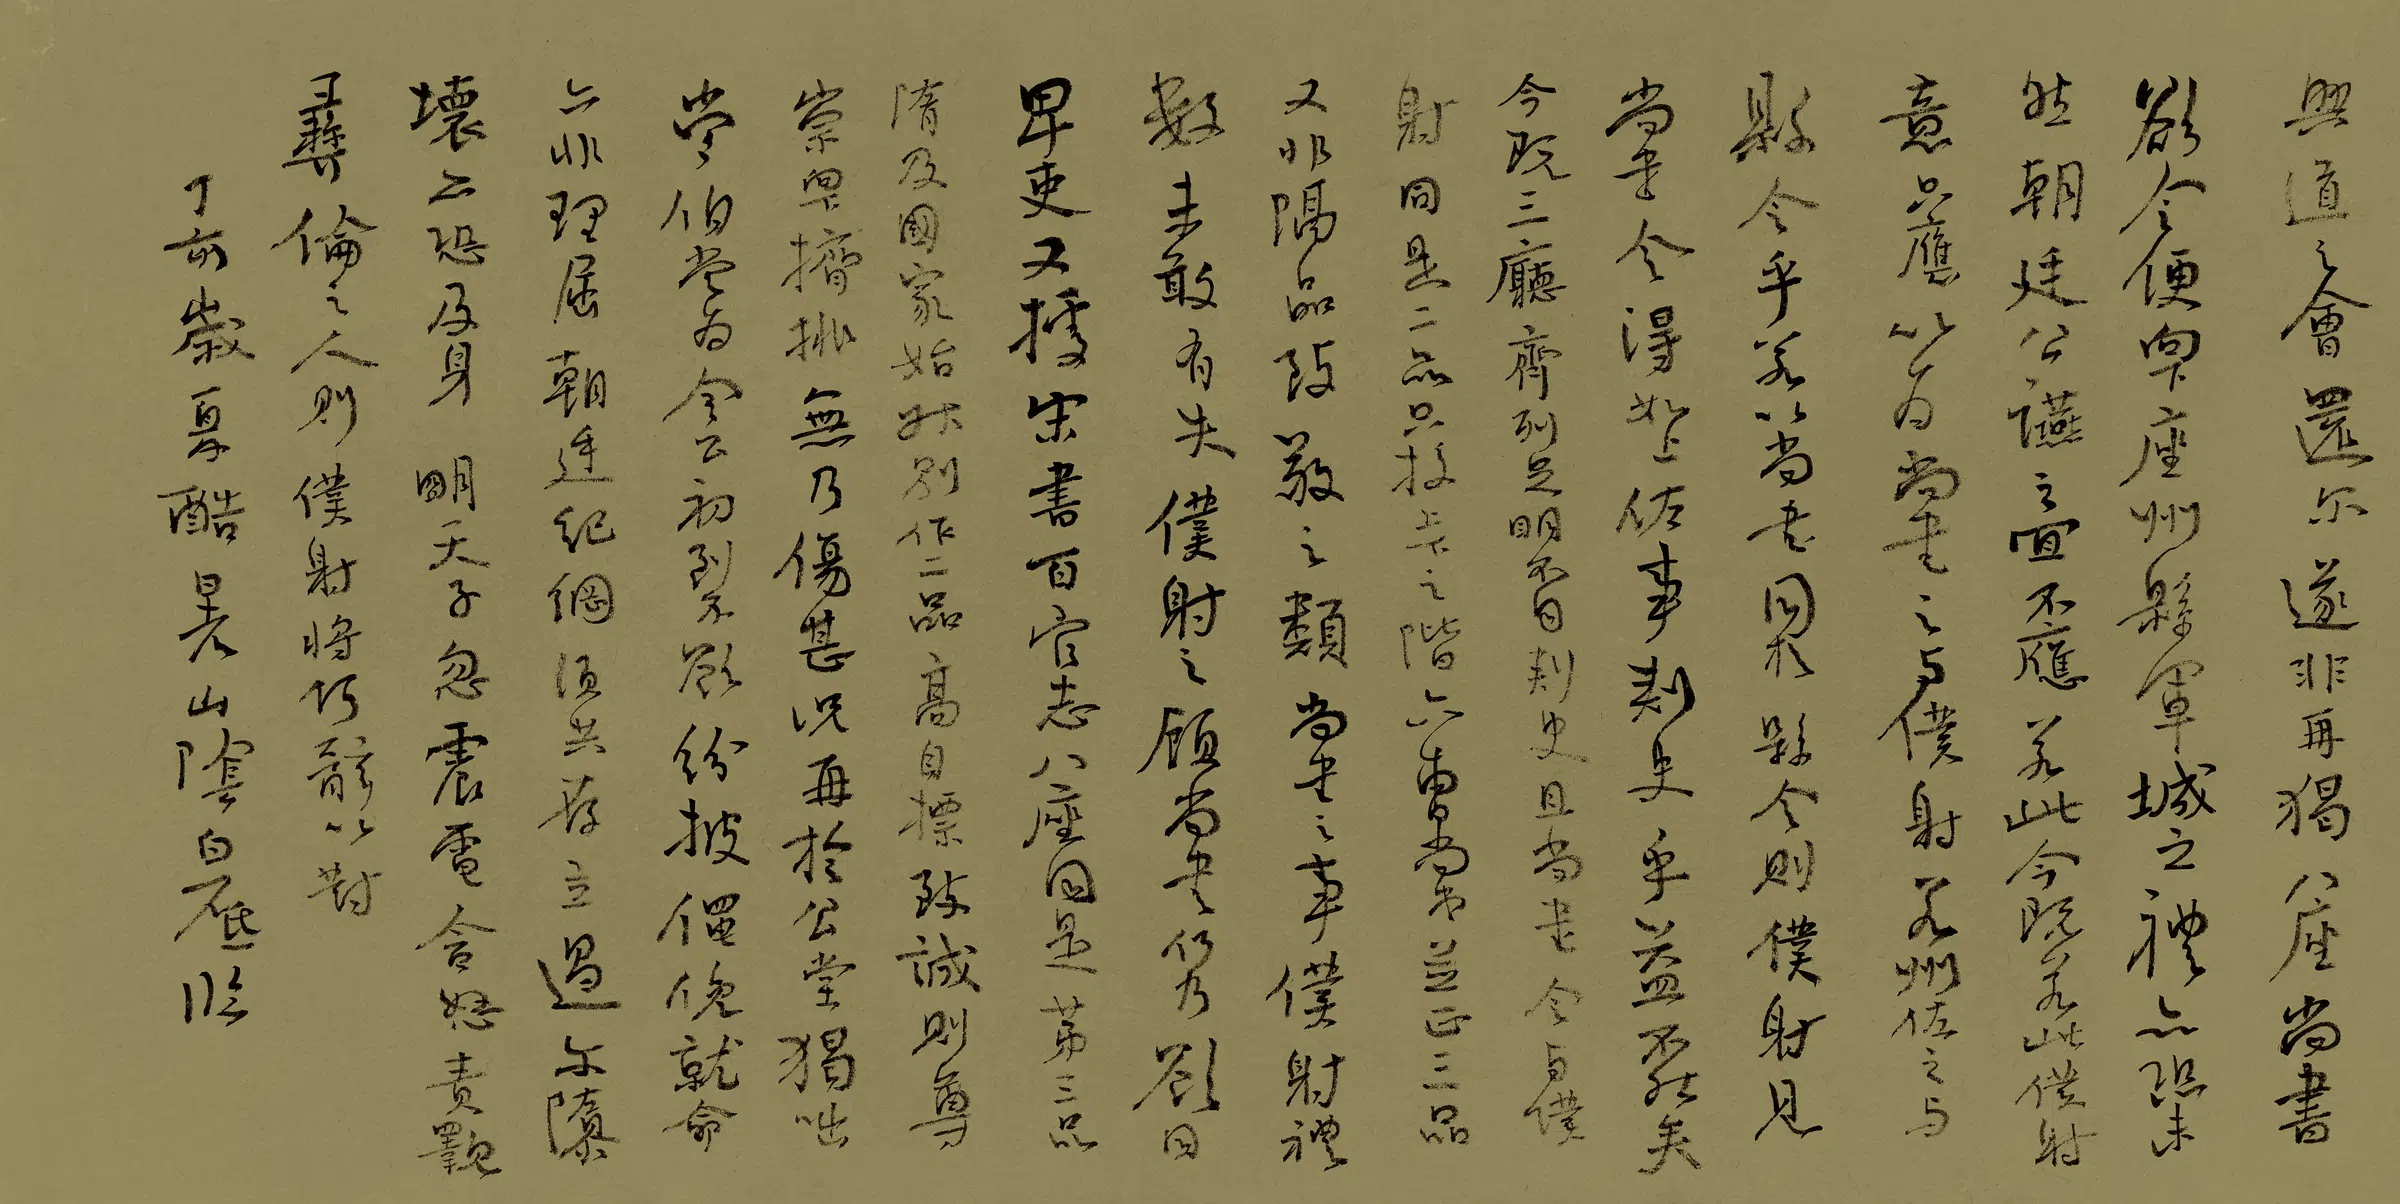 興道之會還尔遂非再猲八座尚書
欲令便向下座州縣軍城之禮亦恐未
然朝廷公讌之宜不應若此今既若此僕射
意只應以为尚書之与僕射若州佐之与
縣令乎若以尚書同於縣令則僕射見
尚書令得如上佐事刺史乎益不然矣
今既三廳齊列足明不同刺史且尚書令与僕
射同是二品只挍上下之階六曹尚書並正三品
又非隔品致敬之類尚書之事僕射禮
數未敢有失僕射之顧尚書何乃欲同
卑吏又據宋書百官志八座同是第三品
隋及國家始升別作二品高自標致誠則尊
崇向下擠排無乃傷甚況再於公堂猲咄
常伯當为令公初到不欲紛披僶俛就命
亦非理屈朝廷紀綱須共存立過尔隳
壞亦恐及身明天子忽震電含怒責斁
彝倫之人則僕射將何辭以對
丁亥歲夏酷暑山陰白砥臨